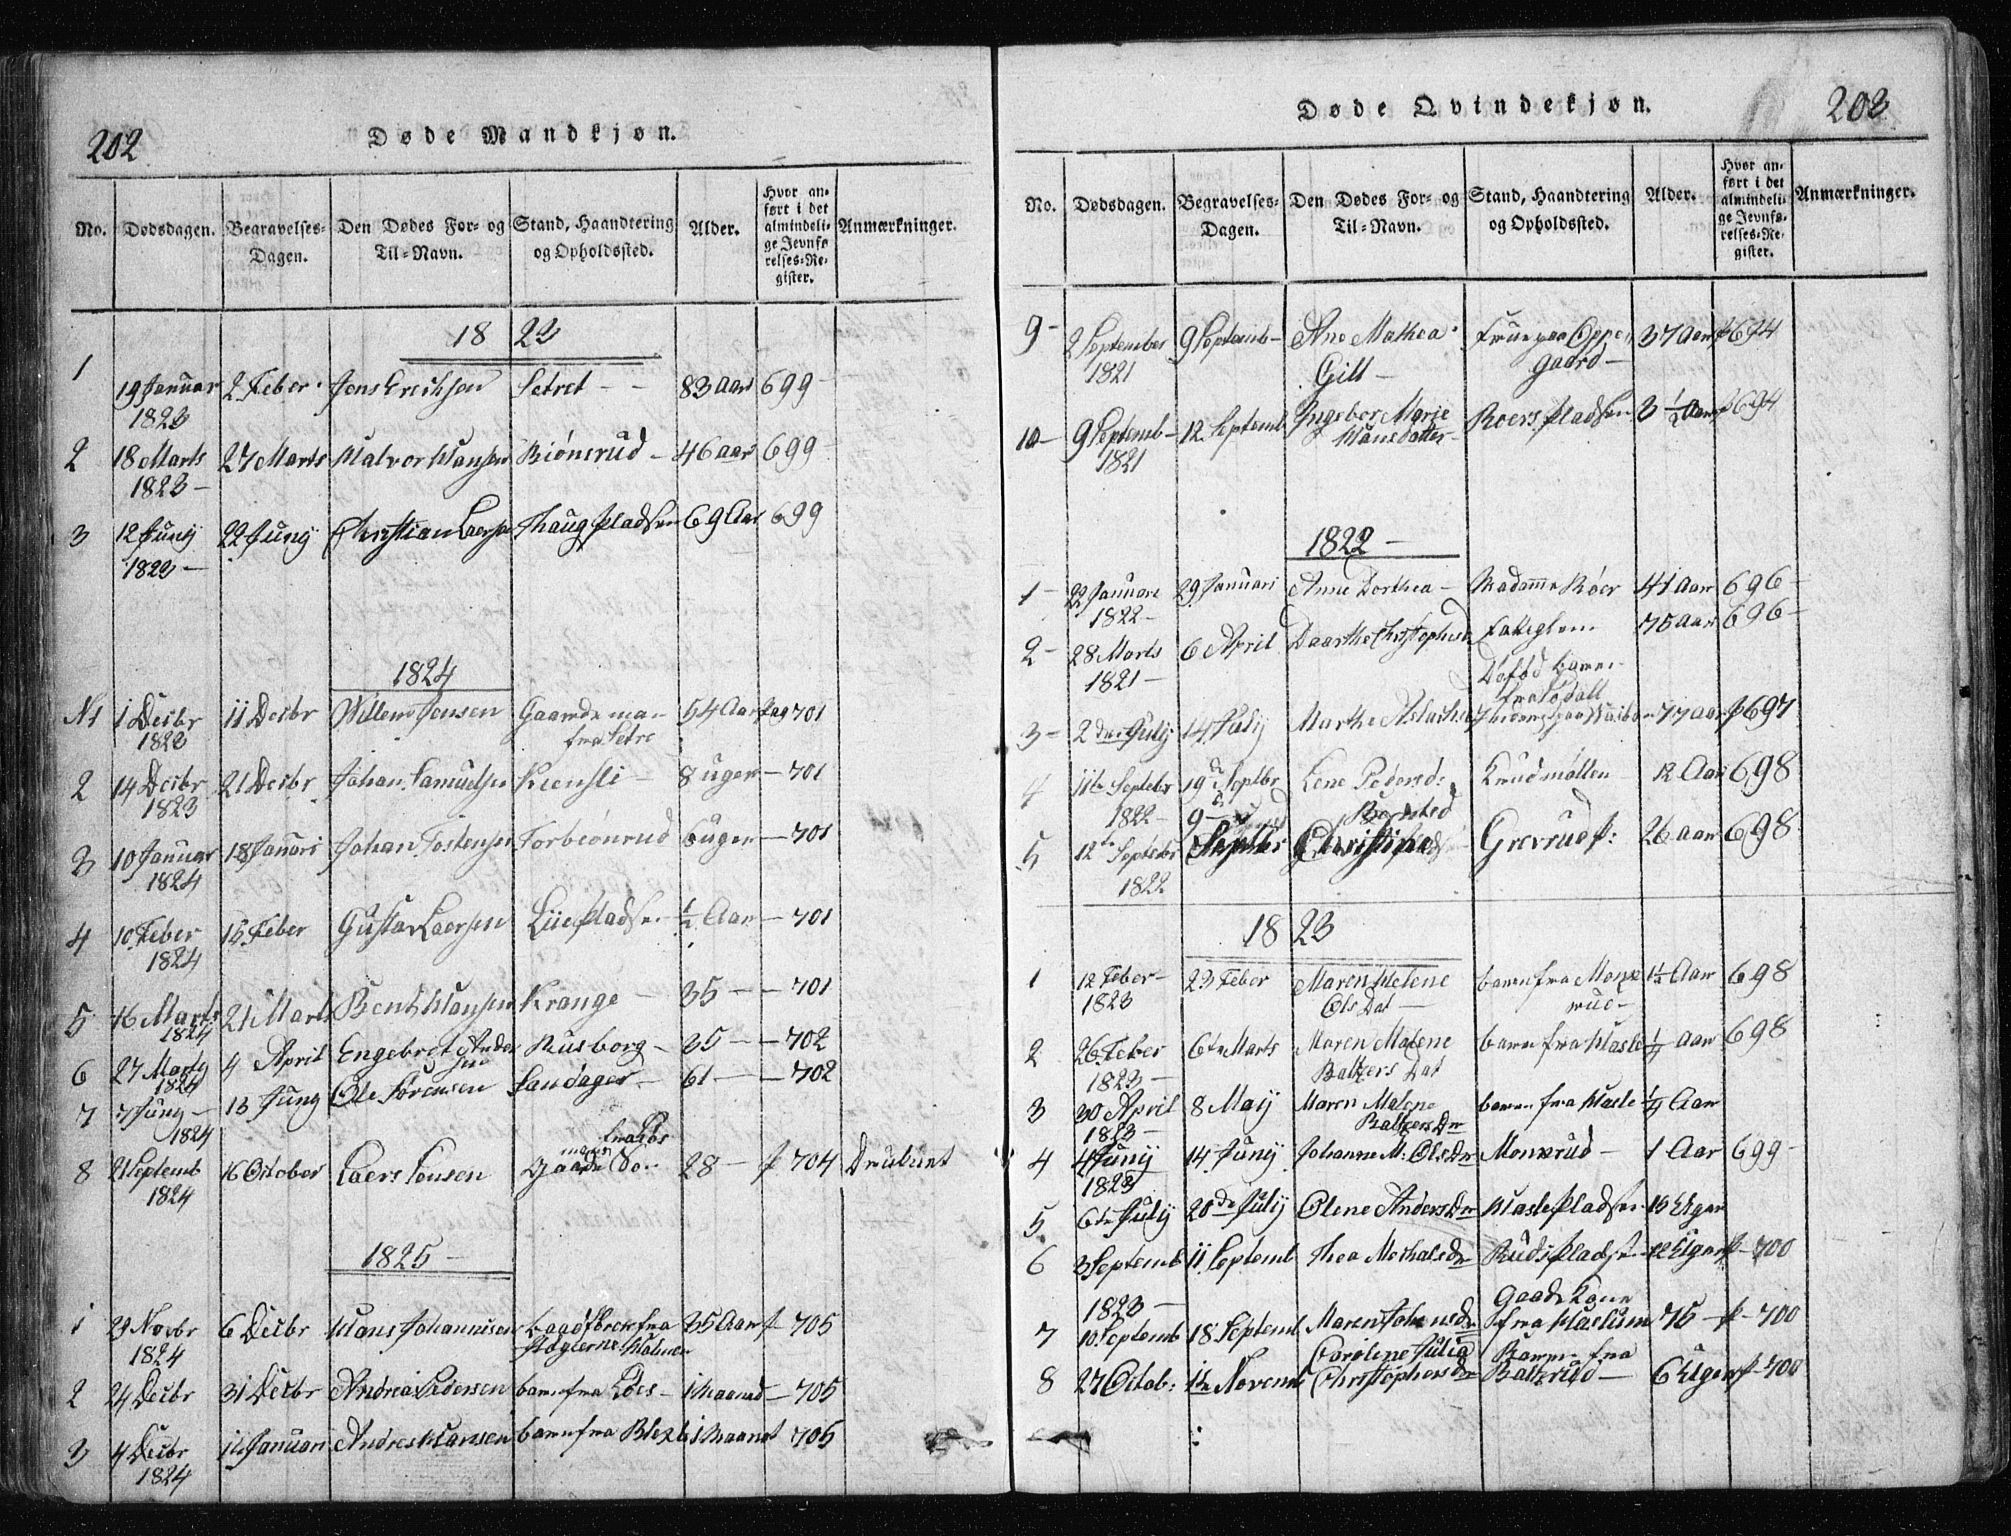 202
Døde Mandkjøn.
No. Dødsdagen. Begravelses-Dagen. Den Dødes For- og Til-Navn. Stand, Haandtering og Opholdssted. Alder. Hvor anført i det almindelige Jevnførelses-Register. Anmærkninger.
1823
1 19 Januar 1823 2 Feber Jens Erichsen Setret 83 aar 699
2 18 Marts 1823 27 Marts Halvor Hansen Biönsrud 46 aar 699
3 12 Juny 1823 22 Juny Christian Laersen Haugpladsen 69 Aar 699
1824
N1 1 Decbr 1823 11 Decbr Willem Jensen Gaardman fra Setre 54 Aar pag 701
2 14 Decbr 1823 21 Decbr Johan Samuelsen 8 uger 701
3 10 Januar 1824 18 Januari Johan Tostensen Torbiönrud 6 uger 701
4 10 Feber 1824 15 Feber Gustav Laersen Liiepladsen ½ Aar 701
5 16 Marts 1824 21 Marts Bent Hansen Krange 35 701
6 27 Marty 1824 4 April Engebret Andersen Rusborg 35 702
7 7 Juny 1824 13 Juny Ole Sørensen Sandager 61 702
8 21 Septemb 1824 16 October Laers Jonsen Gaardman fra 28 p 704 Druknet
1825
1 29 Novbr 1824 6 Decbr Hans Johannesen fra Holmen 35 Aar p 705
2 24 Decbr 31 Decbr Andrea Pedersen barn fra 1 Maaned 705
3 4 Decbr 1824 Januari Andres Hansen barn fra 1 Maanet 705
203
Døde Qvindekjøn.
No. Dødsdagen. Begravelses-Dagen. Den Dødes For- og Til-Navn. Stand, Haandtering og Opholdssted. Alder. Hvor anført i det almindelige Jevnførelses-Register. Anmærkninger.
9 2 September 1821 9 Septemb Ane Mathea Gill Frue paa Oppegaard 37 Aar p 694
10 9 Septemb 1821 12 Septemb Ingebor Marie Hansdatter Roers pladsen 3 ½ Aar p 694
1822
1 22 Januari 1822 29 Januari Anne Dorthea Madamme Röer 41 Aar 696
2 28 Marts 1821 6 April Daarthe Christophersd 75 Aar 696
Døfød barn fra
3 2den July 14 July Marthe 77 Aar p 697
4 11te Septebr 1822 19de Septbr Lene Pedersd: Knudmøllen 12 Aar 698
5 12te Septebr 1822 Septbr Christine Grevrudp: 26 Aar 698
1823
1 12 Feber 1823 23 Feber Maren Helene Ols Dat barn fra Monxrud 1½ Aar 698
2 26 Feber 1823 6te Marts Maren Malene Baltzers Dat barn fra Hasle ¼ Aar 698
3 30 April 1823 8 Maij Maren Malene Baltzers Dr barn fra Hasle ¼ Aar
4 4 Juny 1823 14 Juny Johanne M. Ols Dr Monxrud 1 Aar 699
5 6te July 20de July Olene Anders Dr Haslepladsen 13 Uger
6 3 Septemb 1823 11 Septemb Thea Mathæs Dr Rudspladsen 12 Uger p 700
7 10 Septemb 18 Septemb Maren Johns Dr Gaardkone fra Haslum 76 p 700
8 27 Octob: 1te Novemb Caroline Julia Christophers Dr Barn fra Baltzrud 6 Uger p 700